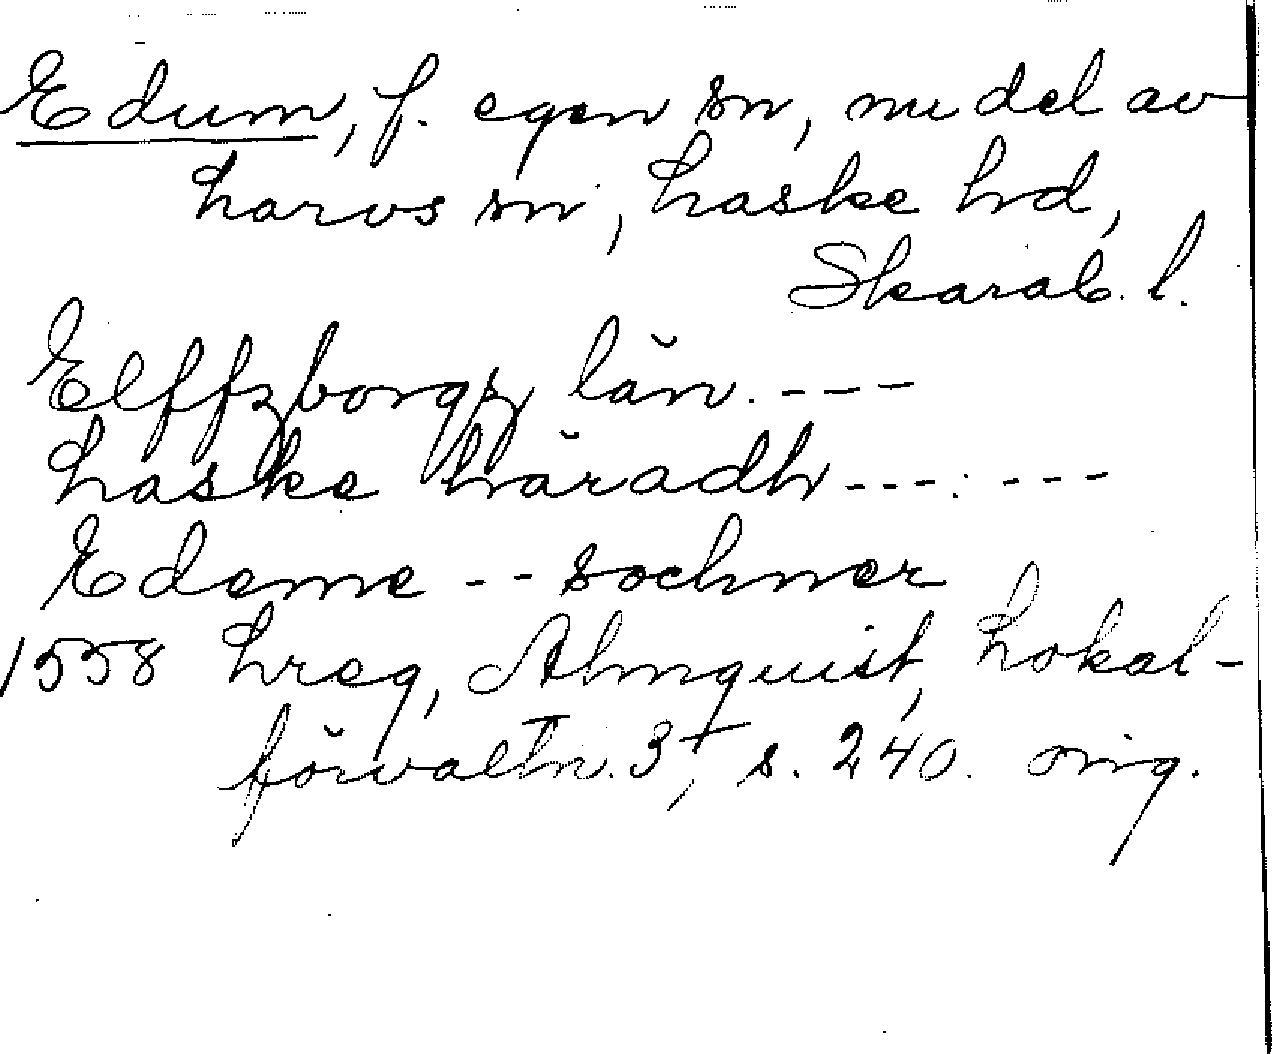 Edum, f. egen sn, nu del av
Larvs sn, Laske hd,
Skarab. l.
Elffzborgz län. ---
Laske häradh ---. ---
Edeme -- sochner
1558 hreg, Almquist, Lokal-
förvaltn. 3, s. 240. orig.